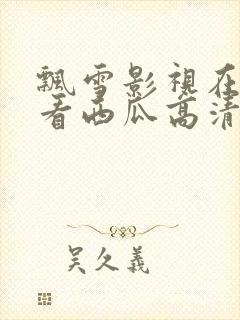 飄雪影視在
看西瓜高清
吴久義